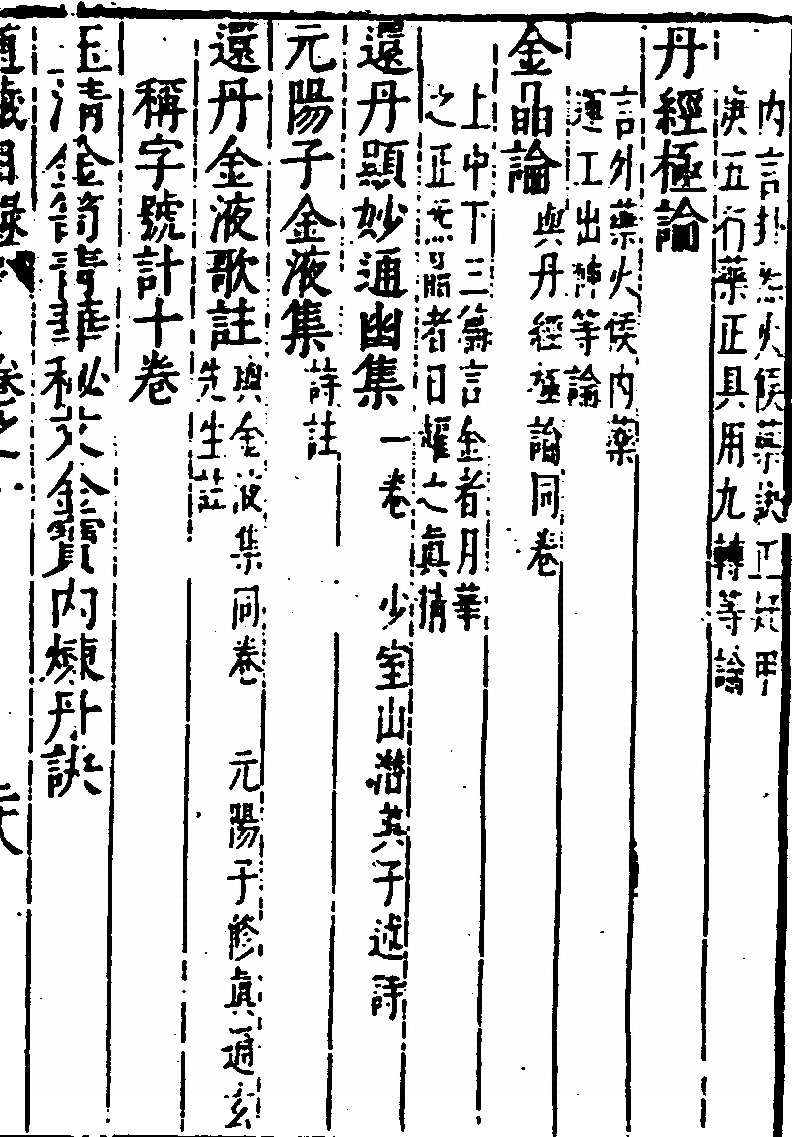 內言抽添火候藥訣正疑甲
庚五行藥正具用九轉等論
丹經極論
言外藥火候內藥
運工出神等論
金晶論 與丹經極論同卷
上中下三篇言金者月華
之正炁晶者日耀之真精
還丹顯妙通幽集 一卷 少室山潛英子述詩
元陽子金液集 詩註
還丹金液歌註 與金液集同卷 元陽子修真通玄
先生註
稱字號計十卷
玉清金笥青華秘文金寶內煉丹訣
道藏目錄 卷之